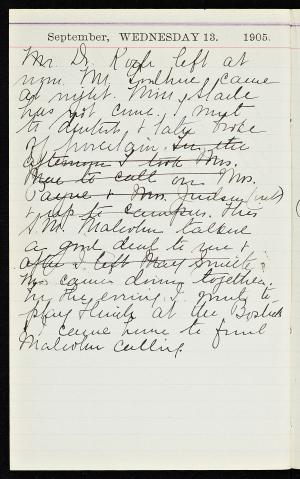 September, WEDNESDAY 13. 1905.
Mr. D. left at
noon. Mr. came
at night. Miss
has not come. I went
to dentist, & broke
off porcelain. In the
afternoon I took Mrs.
to call on Mrs.
Payne & Mrs. Judson (out)
& up to campus. Miss
S. Mr. Malcolm talked
a good deal to me &
after I left May Smith &
came down together.
In the evening I went to
play at the
& came home to find
Malcolm calling